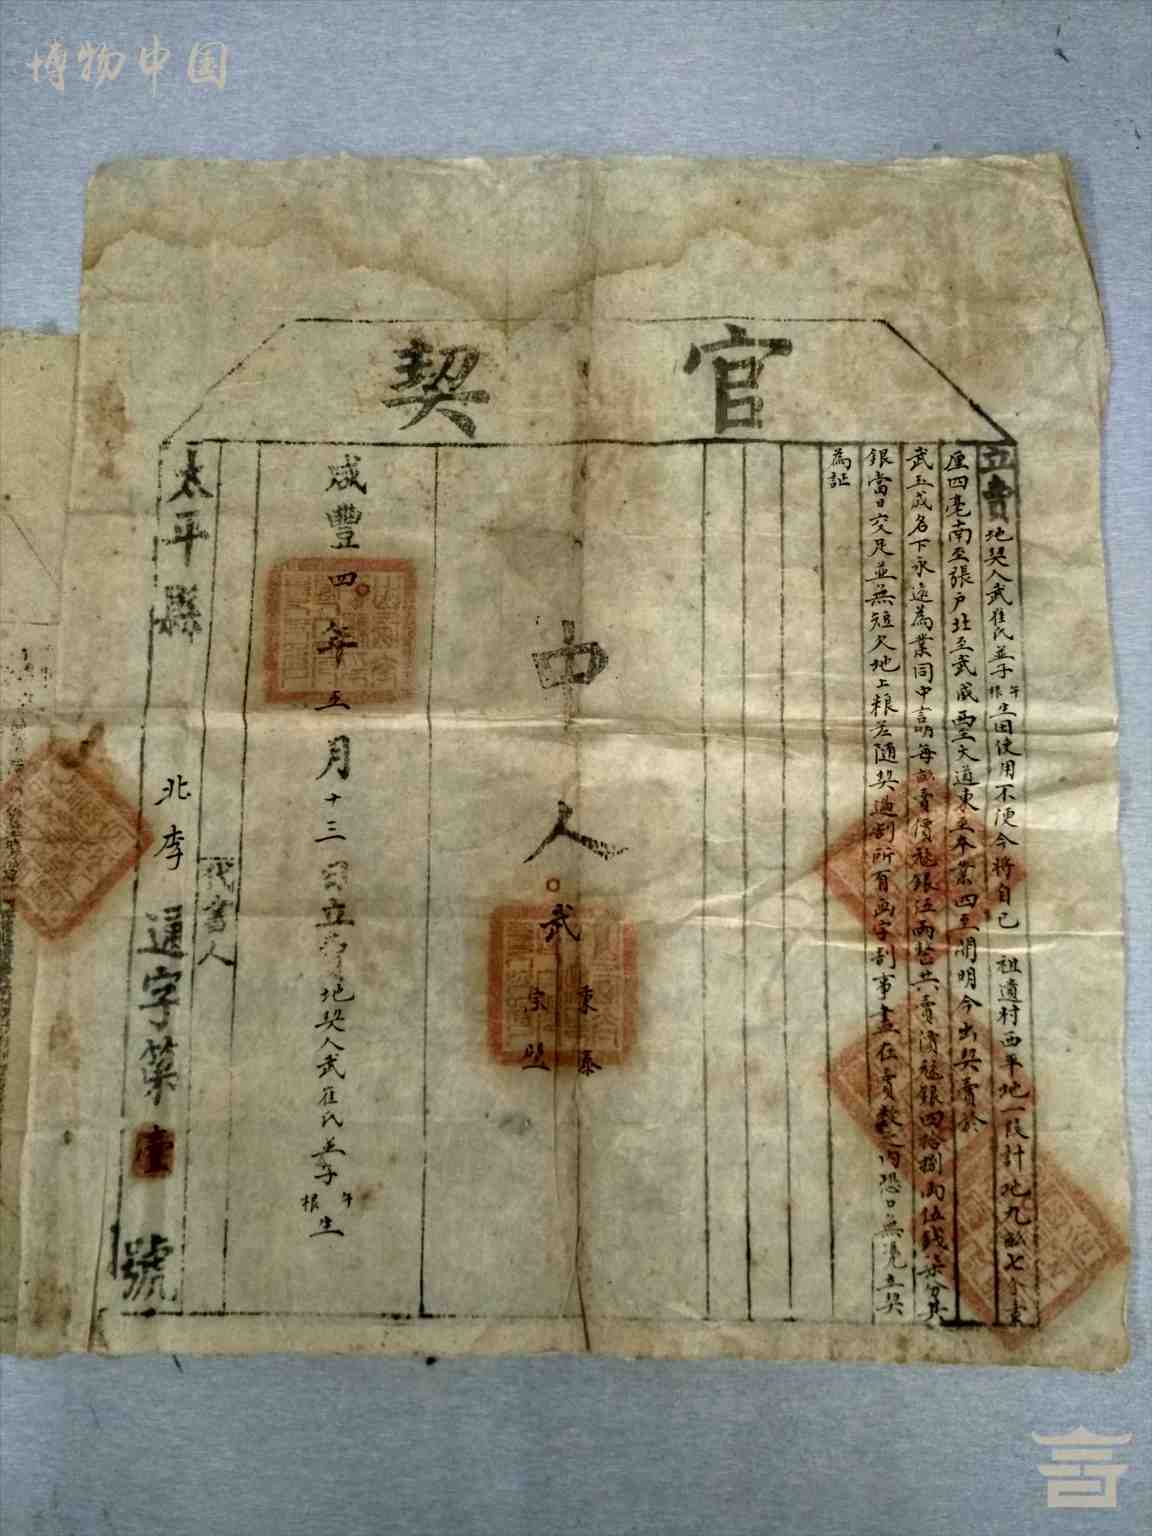 博物中国
官契
立賣地契人武崔氏並子午根生因使用不便今將自己祖遺村西平地一段計地九畝七分壹
厘四毫南至張戶北至武成西至大道東至本業四至開明今出契賣於
武玉成名下永遠為業同中言明每畝賣價紋銀伍兩整共賣價紋銀四拾捌兩伍錢柒分其
銀當日交足並無短欠地上粮差隨契過割所有画字割事盡在賣數之內恐口無憑立契
為証
中人武秉泰
宗
咸豐四年五月十三日立賣地契人武崔氏並子午根生
代書人
太平縣北李通字第壹號